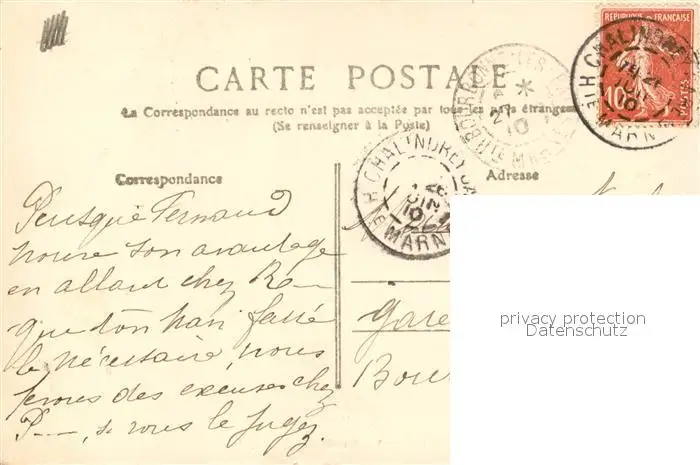 REPUBLIQUE FRANÇAISE
10
POSTES
CHALINDREY
HTE MARNE
10
BOURBONNE-LES-
10
HTE MARNE
CARTE POSTALE
La Correspondance au recto n'est pas acceptée par tous les pays étrangers
(Se renseigner à la Poste)
CHALINDREY
JUIN
10
HTE MARNE
Correspondance
Adresse
Puisque Fernand
trouve son avantage
en allant chez R—
que ton mari fasse
le nécessaire, nous
ferons des excuses chez
P—, si vous le jugez.
Gare
Bour
privacy protection
Datenschutz